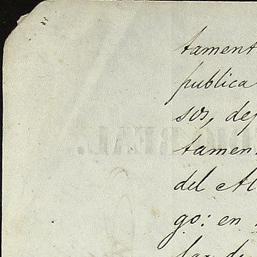 tament
publica
sos, de
tamen
del Al
go: en